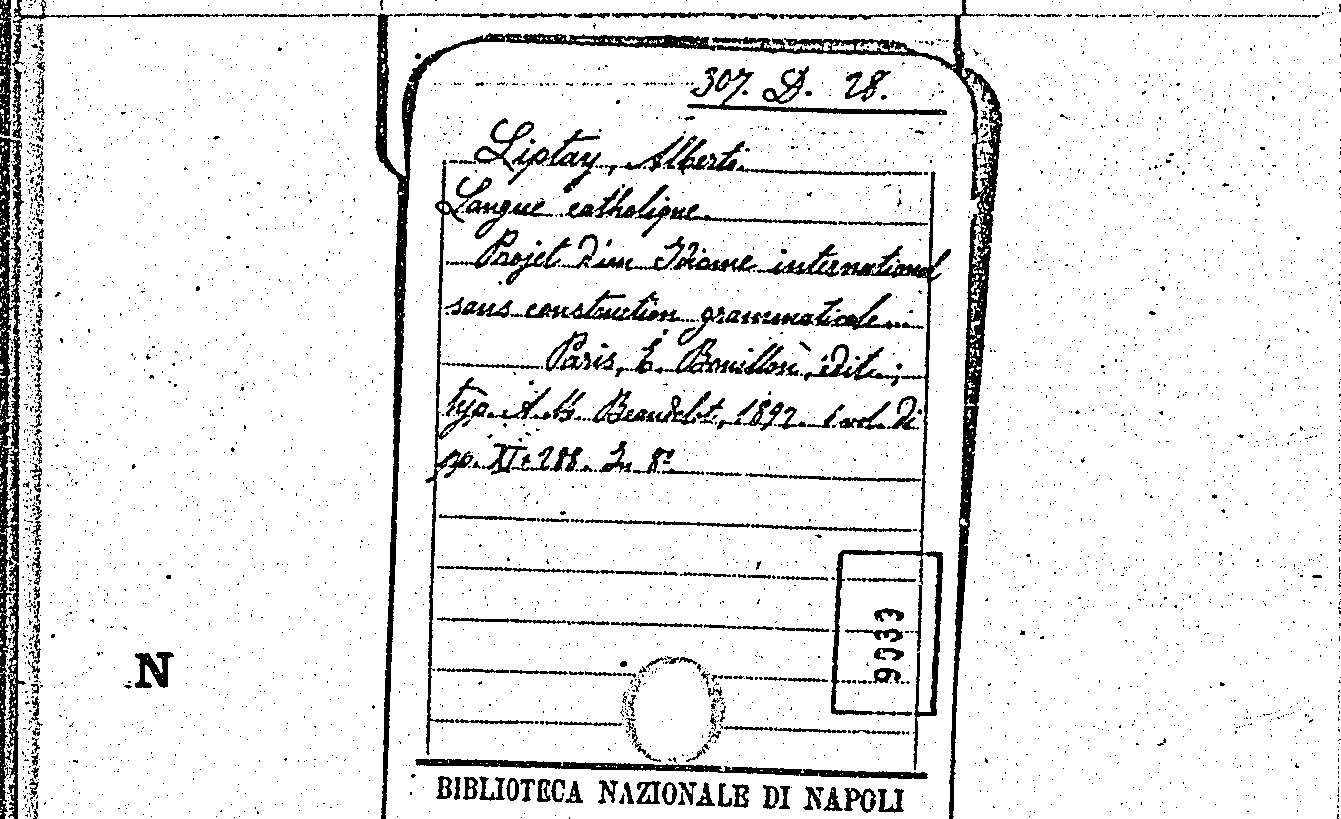 307. D. 28.
Liptay, Alberto.
Langue catholique.
Projet d'un Idiome international
sans construction grammaticale...
Paris, É. Bouillon, édit.;
typ. A. M. Beaudelot, 1892. 1 vol. di
pp. XI+288. In 8º
9033
N
BIBLIOTECA NAZIONALE DI NAPOLI